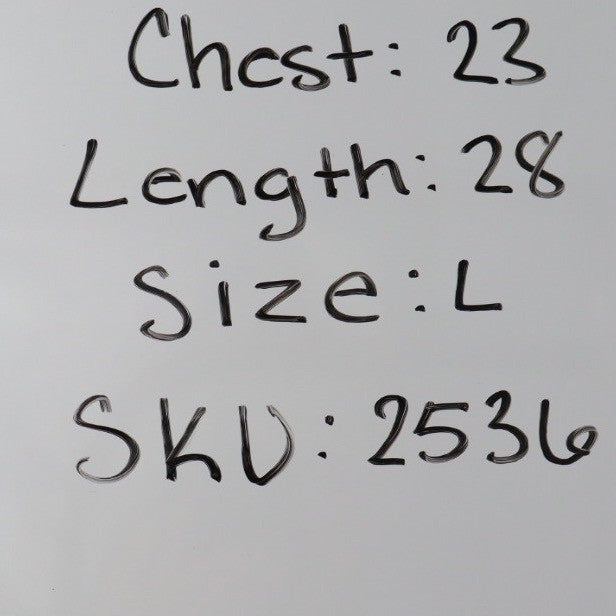 Chest: 23
Length: 28
Size: L
SKU: 2536